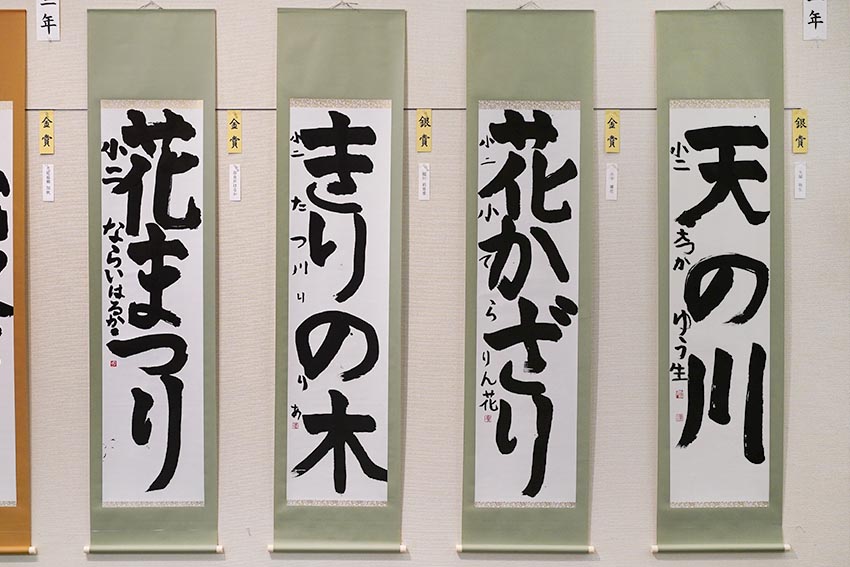 銀賞
天の川
小二
ゆう生
金賞
花かざり
小二 小でら りん花
銀賞
きりの木
小二 たつ川 りりあ
金賞
花まつり
小二 ならいはるか
金賞
年